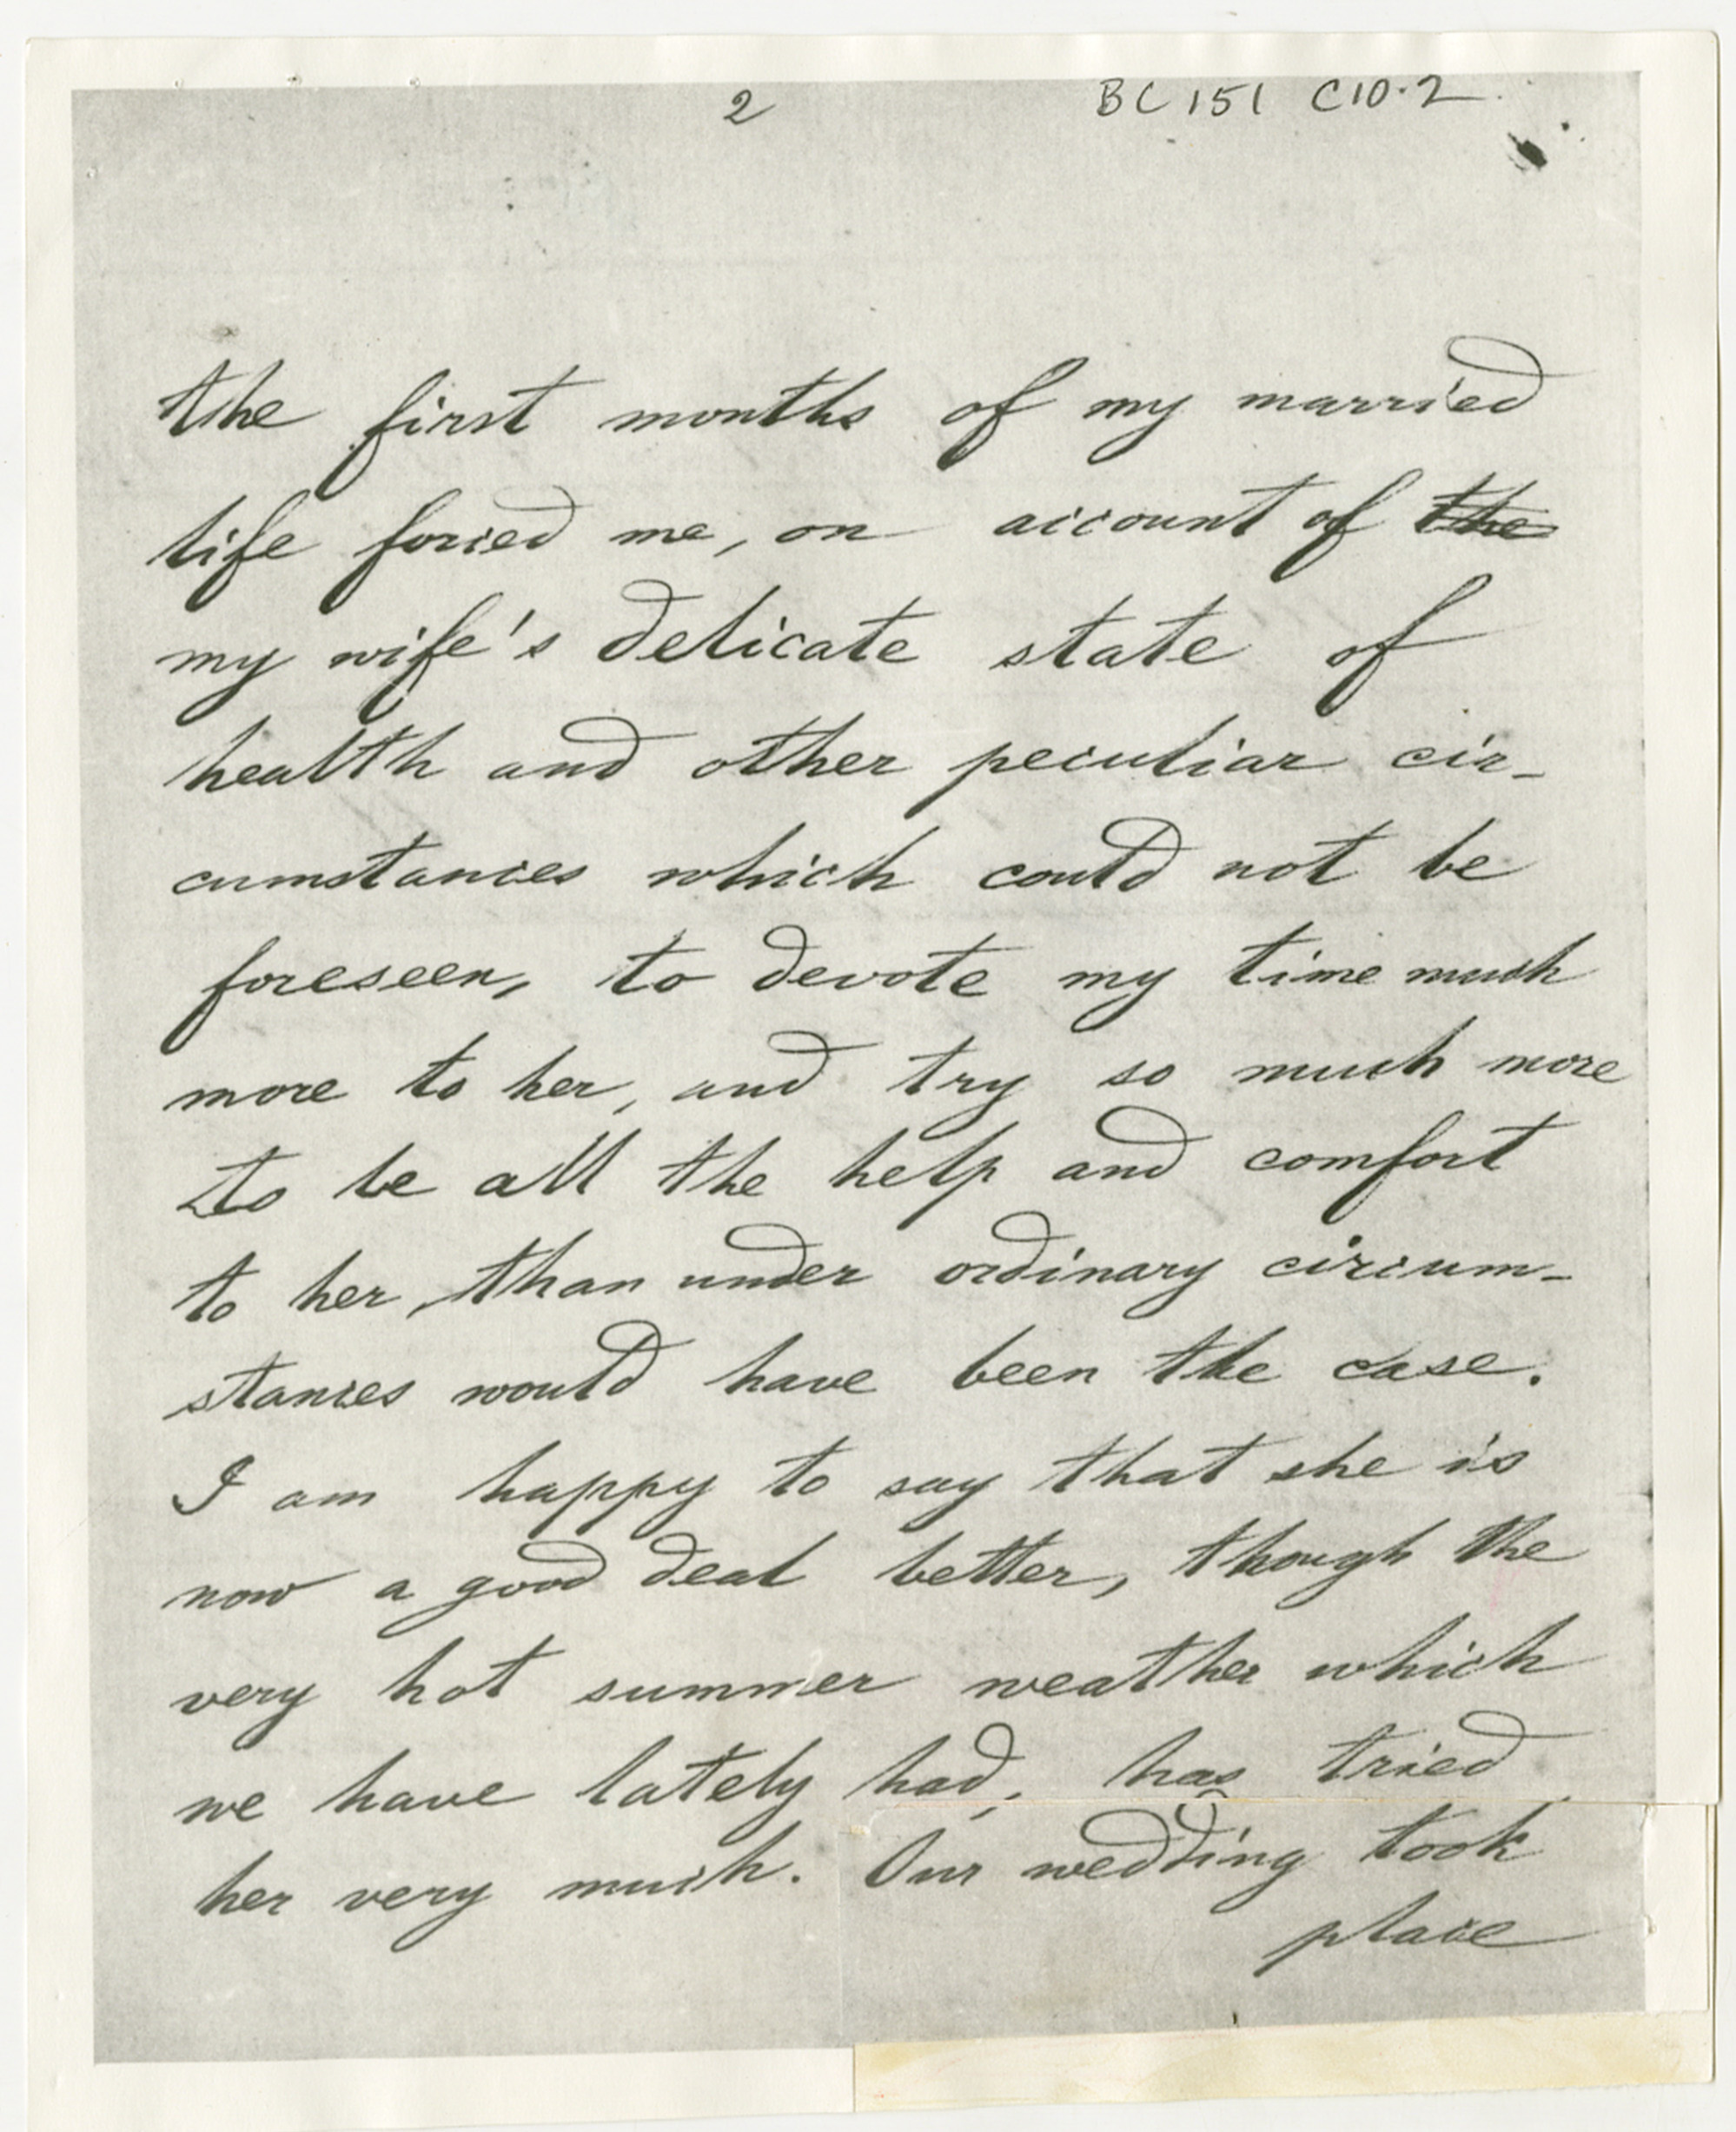 2 BC 151 C10.2
the first months of my married
life forced me, on account of the
my wife's delicate state of
health and other peculiar cir-
cumstances which could not be
foreseen, to devote my time much
more to her, and try so much more
to be all the help and comfort
to her, than under ordinary circum-
stances would have been the case.
I am happy to say that she is
now a good deal better, though the
very hot summer weather which
we have lately had, has tried
her very much. Our wedding took
place